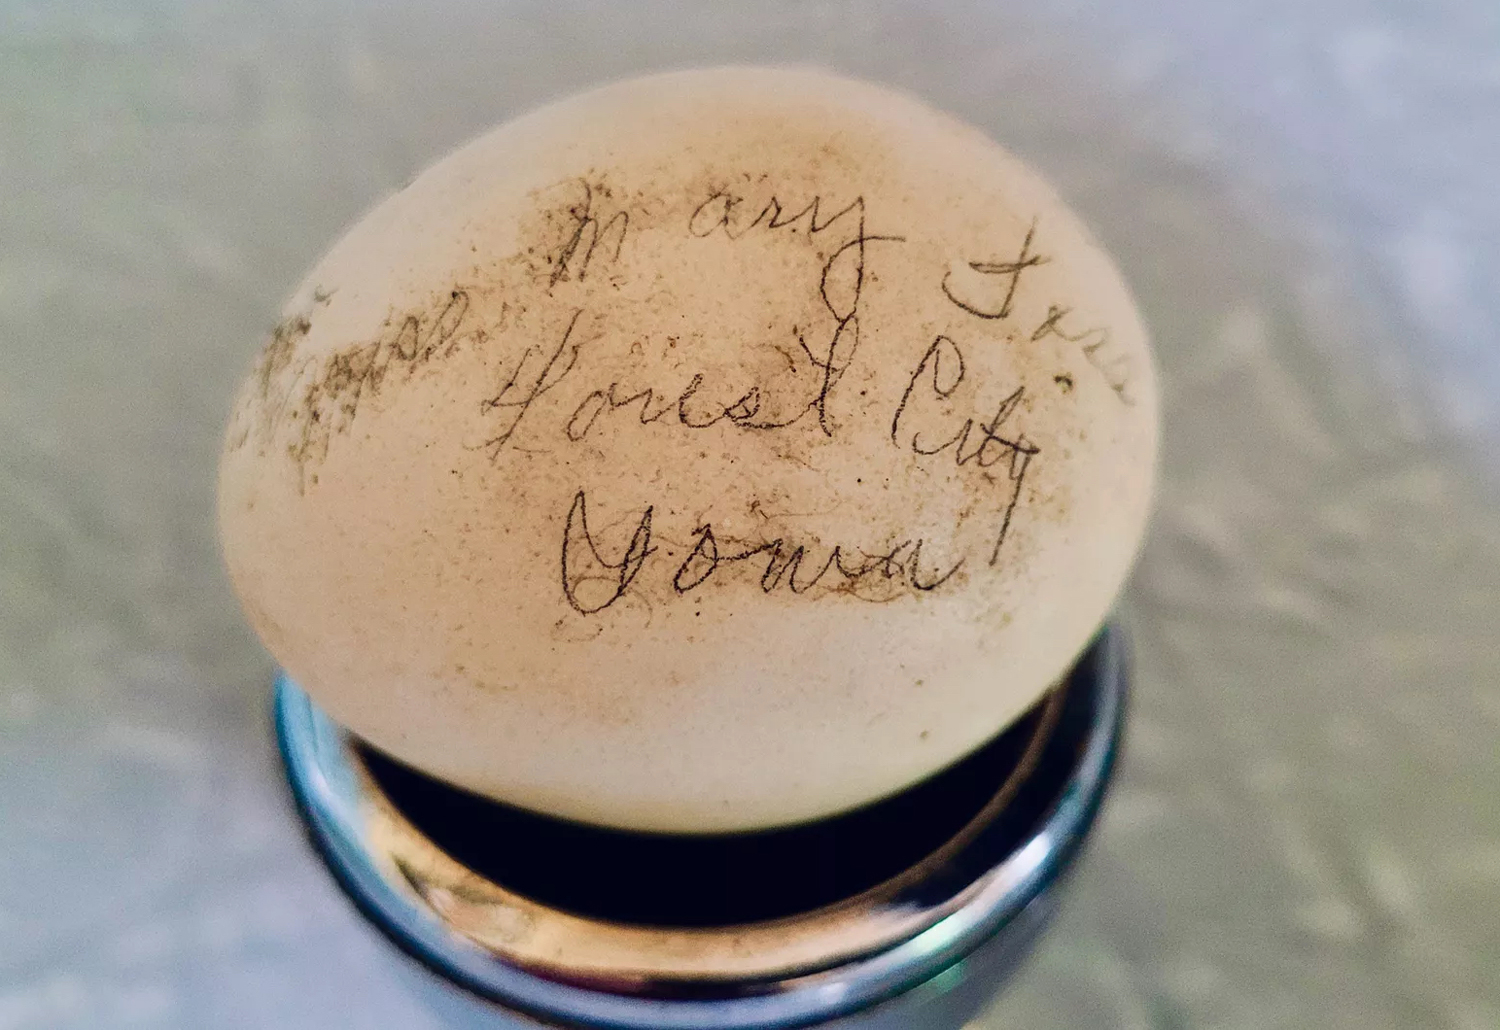 Mary Foss
Forest City
Iowa